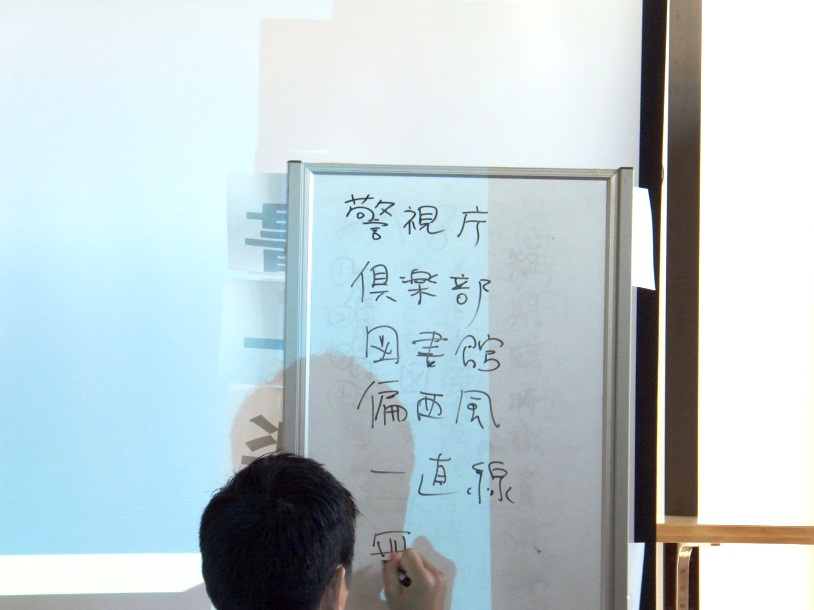 警視庁
倶楽部
図書館
偏西風
一直線